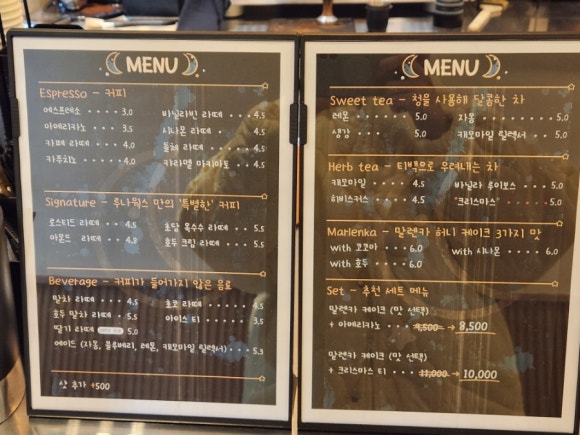 MENU
Espresso - 커피
에스프레소 ····· 3.0
아메리카노 ···· 3.5
카페 라떼 ···· 4.0
카푸치노 ···· 4.0
바닐라빈 라떼 ··· 4.5
시나몬 라떼 ···· 4.5
돌체 라떼 ····· 4.5
카라멜 마키아토 ·· 4.5
Signature - 루나웍스 만의 '특별한' 커피
로스티드 라떼 ··· 4.5
아몬드 라떼 ··· 4.8
초당 옥수수 라떼 ·· 5.5
호두 크림 라떼 ··· 5.5
Beverage - 커피가 들어가지 않은 음료
말차 라떼 ···· 4.5
호두 말차 라떼 ·· 5.5
딸기 라떼 5.0
초코 라떼 ······ 4.5
아이스 티 ······ 3.5
에이드 (자몽, 블루베리, 레몬, 캐모마일 릴렉서) ··· 5.3
샷 추가 +500
MENU
Sweet tea - 청을 사용해 달콤한 차
레몬 ······ 5.0
생강 ······ 5.0
자몽 ········· 5.0
캐모마일 릴렉서 ·· 5.0
Herb tea - 티백으로 우려내는 차
캐모마일 ····· 4.5
히비스커스 ···· 4.5
바닐라 루이보스 ··· 5.0
'크리스마스' ····· 5.0
Marlenka - 말렌카 허니 케이크 3가지 맛
with 코코아 ··· 6.0
with 호두 ···· 6.0
with 시나몬 ···· 6.0
Set - 추천 세트 메뉴
말렌카 케이크 (맛 선택)
+ 아메리카노 ··· 9,500 → 8,500
말렌카 케이크 (맛 선택)
+ 크리스마스 티 ··· 11,000 → 10,000